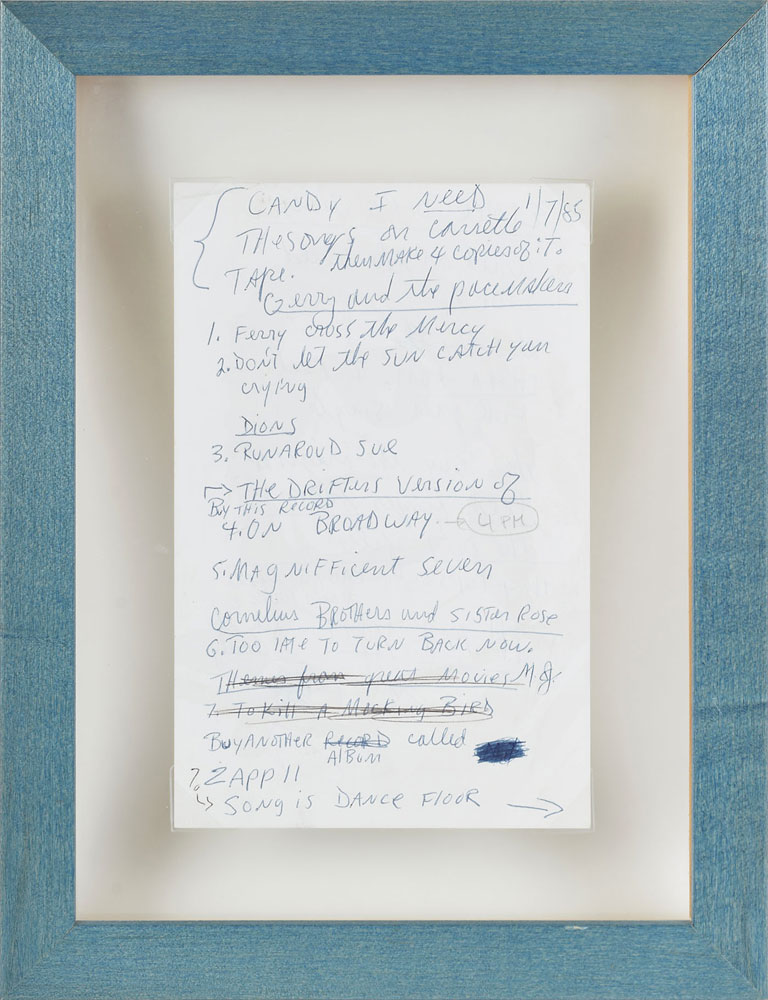 CANDY I NEED 1/7/85
THESONGS on cassette
TApe. then MAKE 4 copies of iT.
Gerry and the paceMakers
1. Ferry cross the Mercy
2. DON't let the SUN CATCH your
crying
DIONS
3. RUNAROUD SUE
→ THE DRIFTERS VERSION of
BUY THIS RECORD
4. ON BROADWAY. → 4 PM
5. MAGNIFFICENT SEVEN
Cornelius BROTHERS and SISTER ROSE
6. TOO lATE TO TURN BACK NOW.
THemes from great Movies
7. To Kill A Mocking BIRD
BuyANOTHER RECORD called
AlBum
7. ZAPP II
↳ SONG iS DANCE FLOOR →